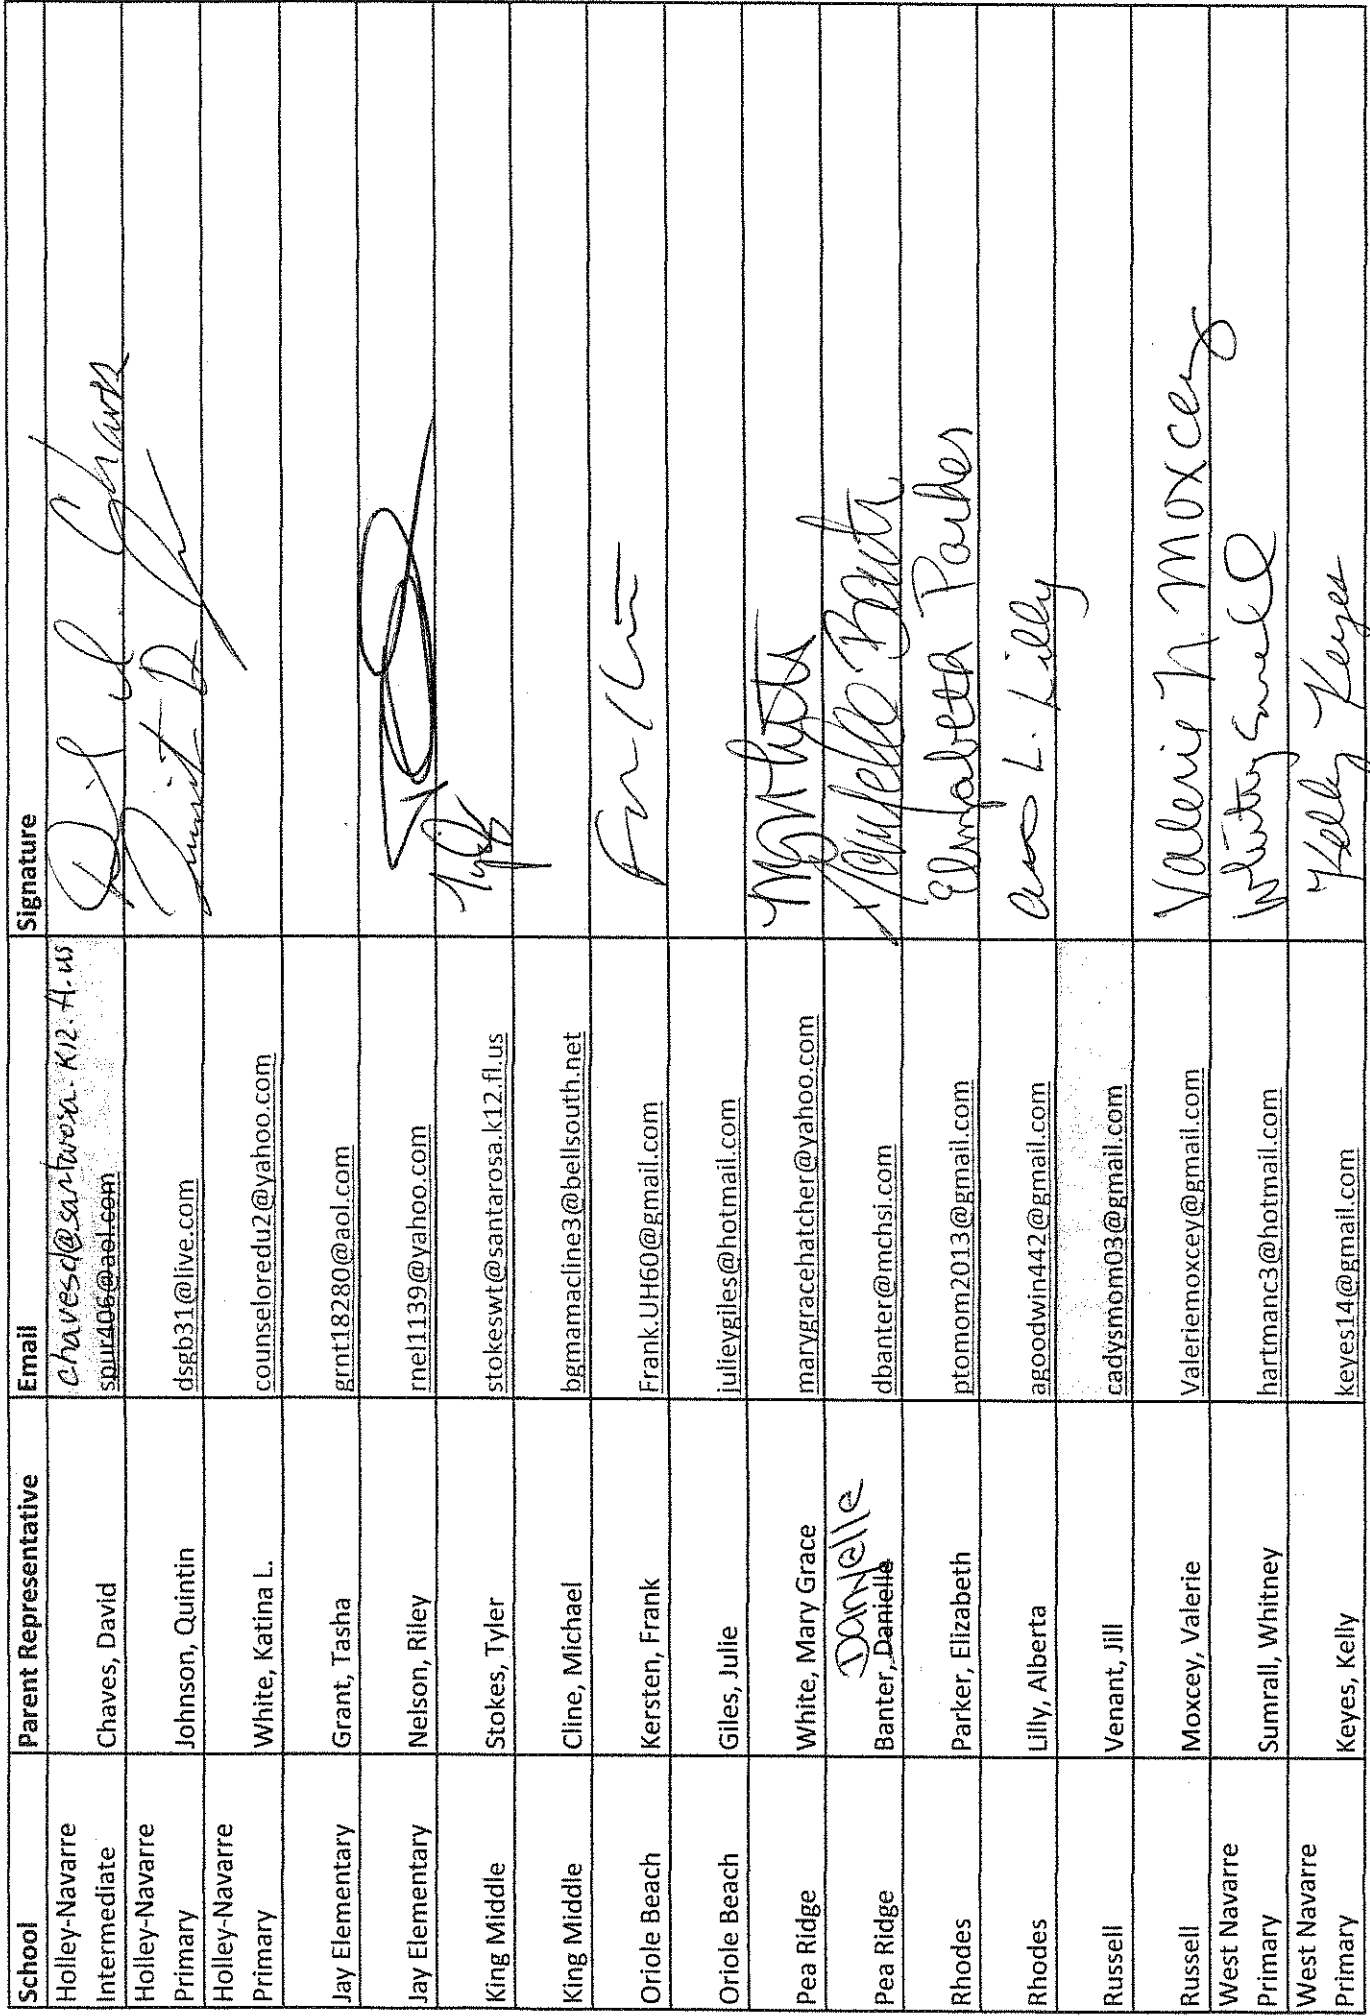 School Parent Representative Email Signature
Holley-Navarre chavesd@santarosa.K12.fl.us
Intermediate Chaves, David spur406@aol.com Chaves
Holley-Navarre
Primary Johnson, Quintin dsgb31@live.com
Holley-Navarre
Primary White, Katina L. counseloredu2@yahoo.com
Jay Elementary Grant, Tasha grnt18280@aol.com
Jay Elementary Nelson, Riley rnel1139@yahoo.com
King Middle Stokes, Tyler stokeswt@santarosa.k12.fl.us
King Middle Cline, Michael bgmamacline3@bellsouth.net
Oriole Beach Kersten, Frank Frank.UH60@gmail.com
Oriole Beach Giles, Julie julievgiles@hotmail.com
Pea Ridge White, Mary Grace marygracehatcher@yahoo.com
Danyelle
Pea Ridge Banter, Danielle dbanter@mchsi.com
Rhodes Parker, Elizabeth ptomom2013@gmail.com Elizabeth Parker
Rhodes Lilly, Alberta agoodwin442@gmail.com L. Lilly
Russell Venant, Jill cadysmom03@gmail.com
Russell Moxcey, Valerie Valeriemoxcey@gmail.com Valerie N. Moxcey
West Navarre
Primary Sumrall, Whitney hartmanc3@hotmail.com
West Navarre
Primary Keyes, Kelly keyes14@gmail.com Kelly Keyes